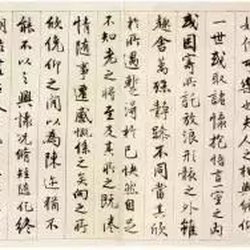 夫人之相
一世或取諸懷抱悟言一室之內
或因寄所託放浪形骸之外雖
趣舍萬殊靜躁不同當其欣
於所遇暫得於己快然自足
不知老之將至及其所之既惓
情隨事遷感慨係之矣向之所
欣俛仰之間以為陳迹猶不
能不以之興懷況脩短隨化終